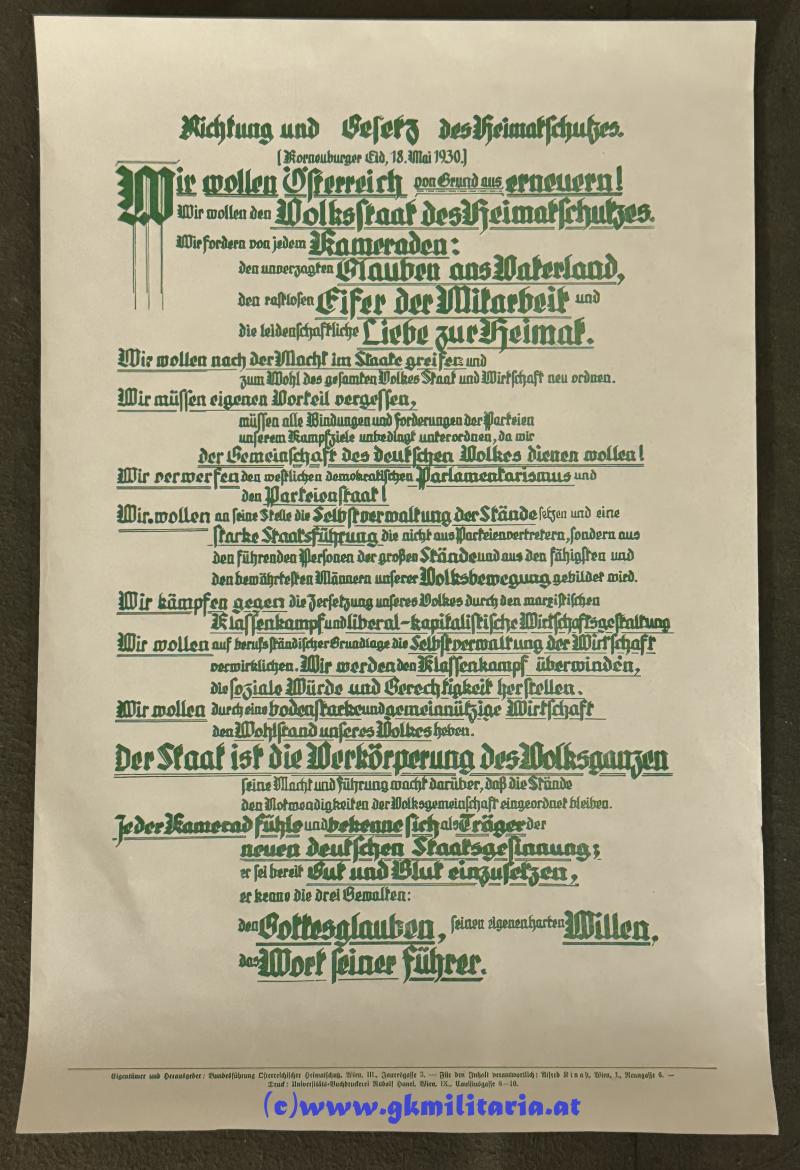 Richtung und Gesetz des Heimatschutzes.
[Korneuburger Eid, 18. Mai 1930.]
Wir wollen Österreich von Grund aus erneuern!
Wir wollen den Volksstaat des Heimatschutzes.
Wir fordern von jedem Kameraden:
den unverzagten Glauben ans Vaterland,
den rastlosen Eifer der Mitarbeit und
die leidenschaftliche Liebe zur Heimat.
Wir wollen nach der Macht im Staate greifen und
zum Wohl des gesamten Volkes Staat und Wirtschaft neu ordnen.
Wir müssen eigenen Vorteil vergessen,
müssen alle Bindungen und Forderungen der Parteien
unserem Kampfziele unbedingt unterordnen, da wir
der Gemeinschaft des deutschen Volkes dienen wollen!
Wir verwerfen den westlichen demokratischen Parlamentarismus und
den Parteienstaat!
Wir wollen an seine Stelle die Selbstverwaltung der Stände setzen und eine
starke Staatsführung die nicht aus Parteienvertretern, sondern aus
den führenden Personen der großen Stände und aus den fähigsten und
den bewährtesten Männern unserer Volksbewegung gebildet wird.
Wir kämpfen gegen die Zersetzung unseres Volkes durch den marxistischen
Klassenkampf und liberal-kapitalistische Wirtschaftsgestaltung
Wir wollen auf berufsständischer Grundlage die Selbstverwaltung der Wirtschaft
verwirklichen. Wir werden den Klassenkampf überwinden,
die soziale Würde und Gerechtigkeit herstellen.
Wir wollen durch eine bodenstarke und gemeinnützige Wirtschaft
den Wohlstand unseres Volkes heben.
Der Staat ist die Verkörperung des Volksganzen
seine Macht und Führung wacht darüber, daß die Stände
den Notwendigkeiten der Volksgemeinschaft eingeordnet bleiben.
Jeder Kamerad fühle und bekenne sich als Träger der
neuen deutschen Staatsgesinnung;
er sei bereit Gut und Blut einzusetzen,
er kenne die drei Gewalten:
den Gottesglauben, seinen eigenen harten Willen,
das Wort seiner Führer.
Eigentümer und Herausgeber: Bundesführung Österreichischer Heimatschutz, Wien, III., Jauresgasse 3. — Für den Inhalt verantwortlich: Alfred Kinast, Wien, 1., Renngasse 6. —
Druck: Universitäts-Buchdruckerei Rudolf Hanel, Wien, IX., Canisiusgasse 8—10.
(c)www.gkmilitaria.at